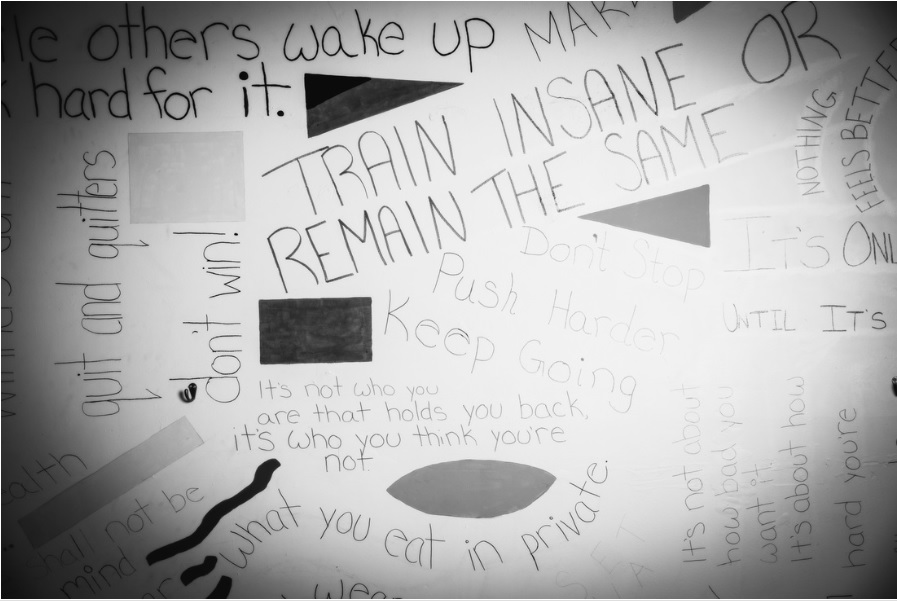 others wake up
hard for it.
MAK
OR
TRAIN INSANE
REMAIN THE SAME
NOTHING
FEELS BETTE
quit and quitters
don't win!
Don't Stop
Push Harder
Keep Going
IT'S ONL
UNTIL IT'S
It's not who you
are that holds you back,
it's who you think you're
not.
ealth
shall not be
mind
What you eat in private.
wear
It's not about
how bad you
want it.
It's about how
hard you're